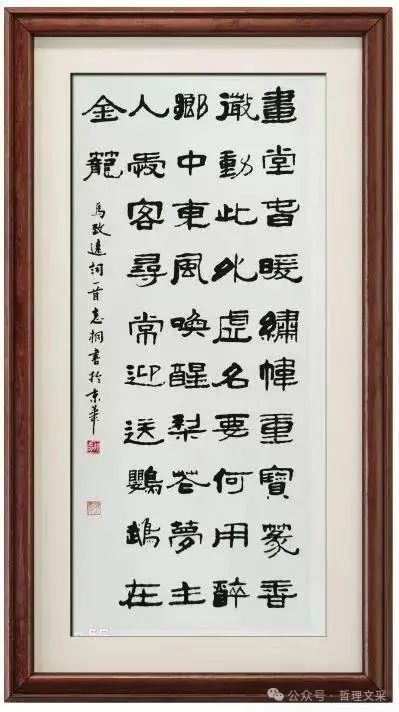 畫堂春暖繡幃重寶篆香
微動此外虛名要何用醉
鄉中東風喚醒梨花夢主
人愛客尋常迎送鸚鵡在
金籠
馬致遠詞一首桐書於京華
公众号·哲理文采